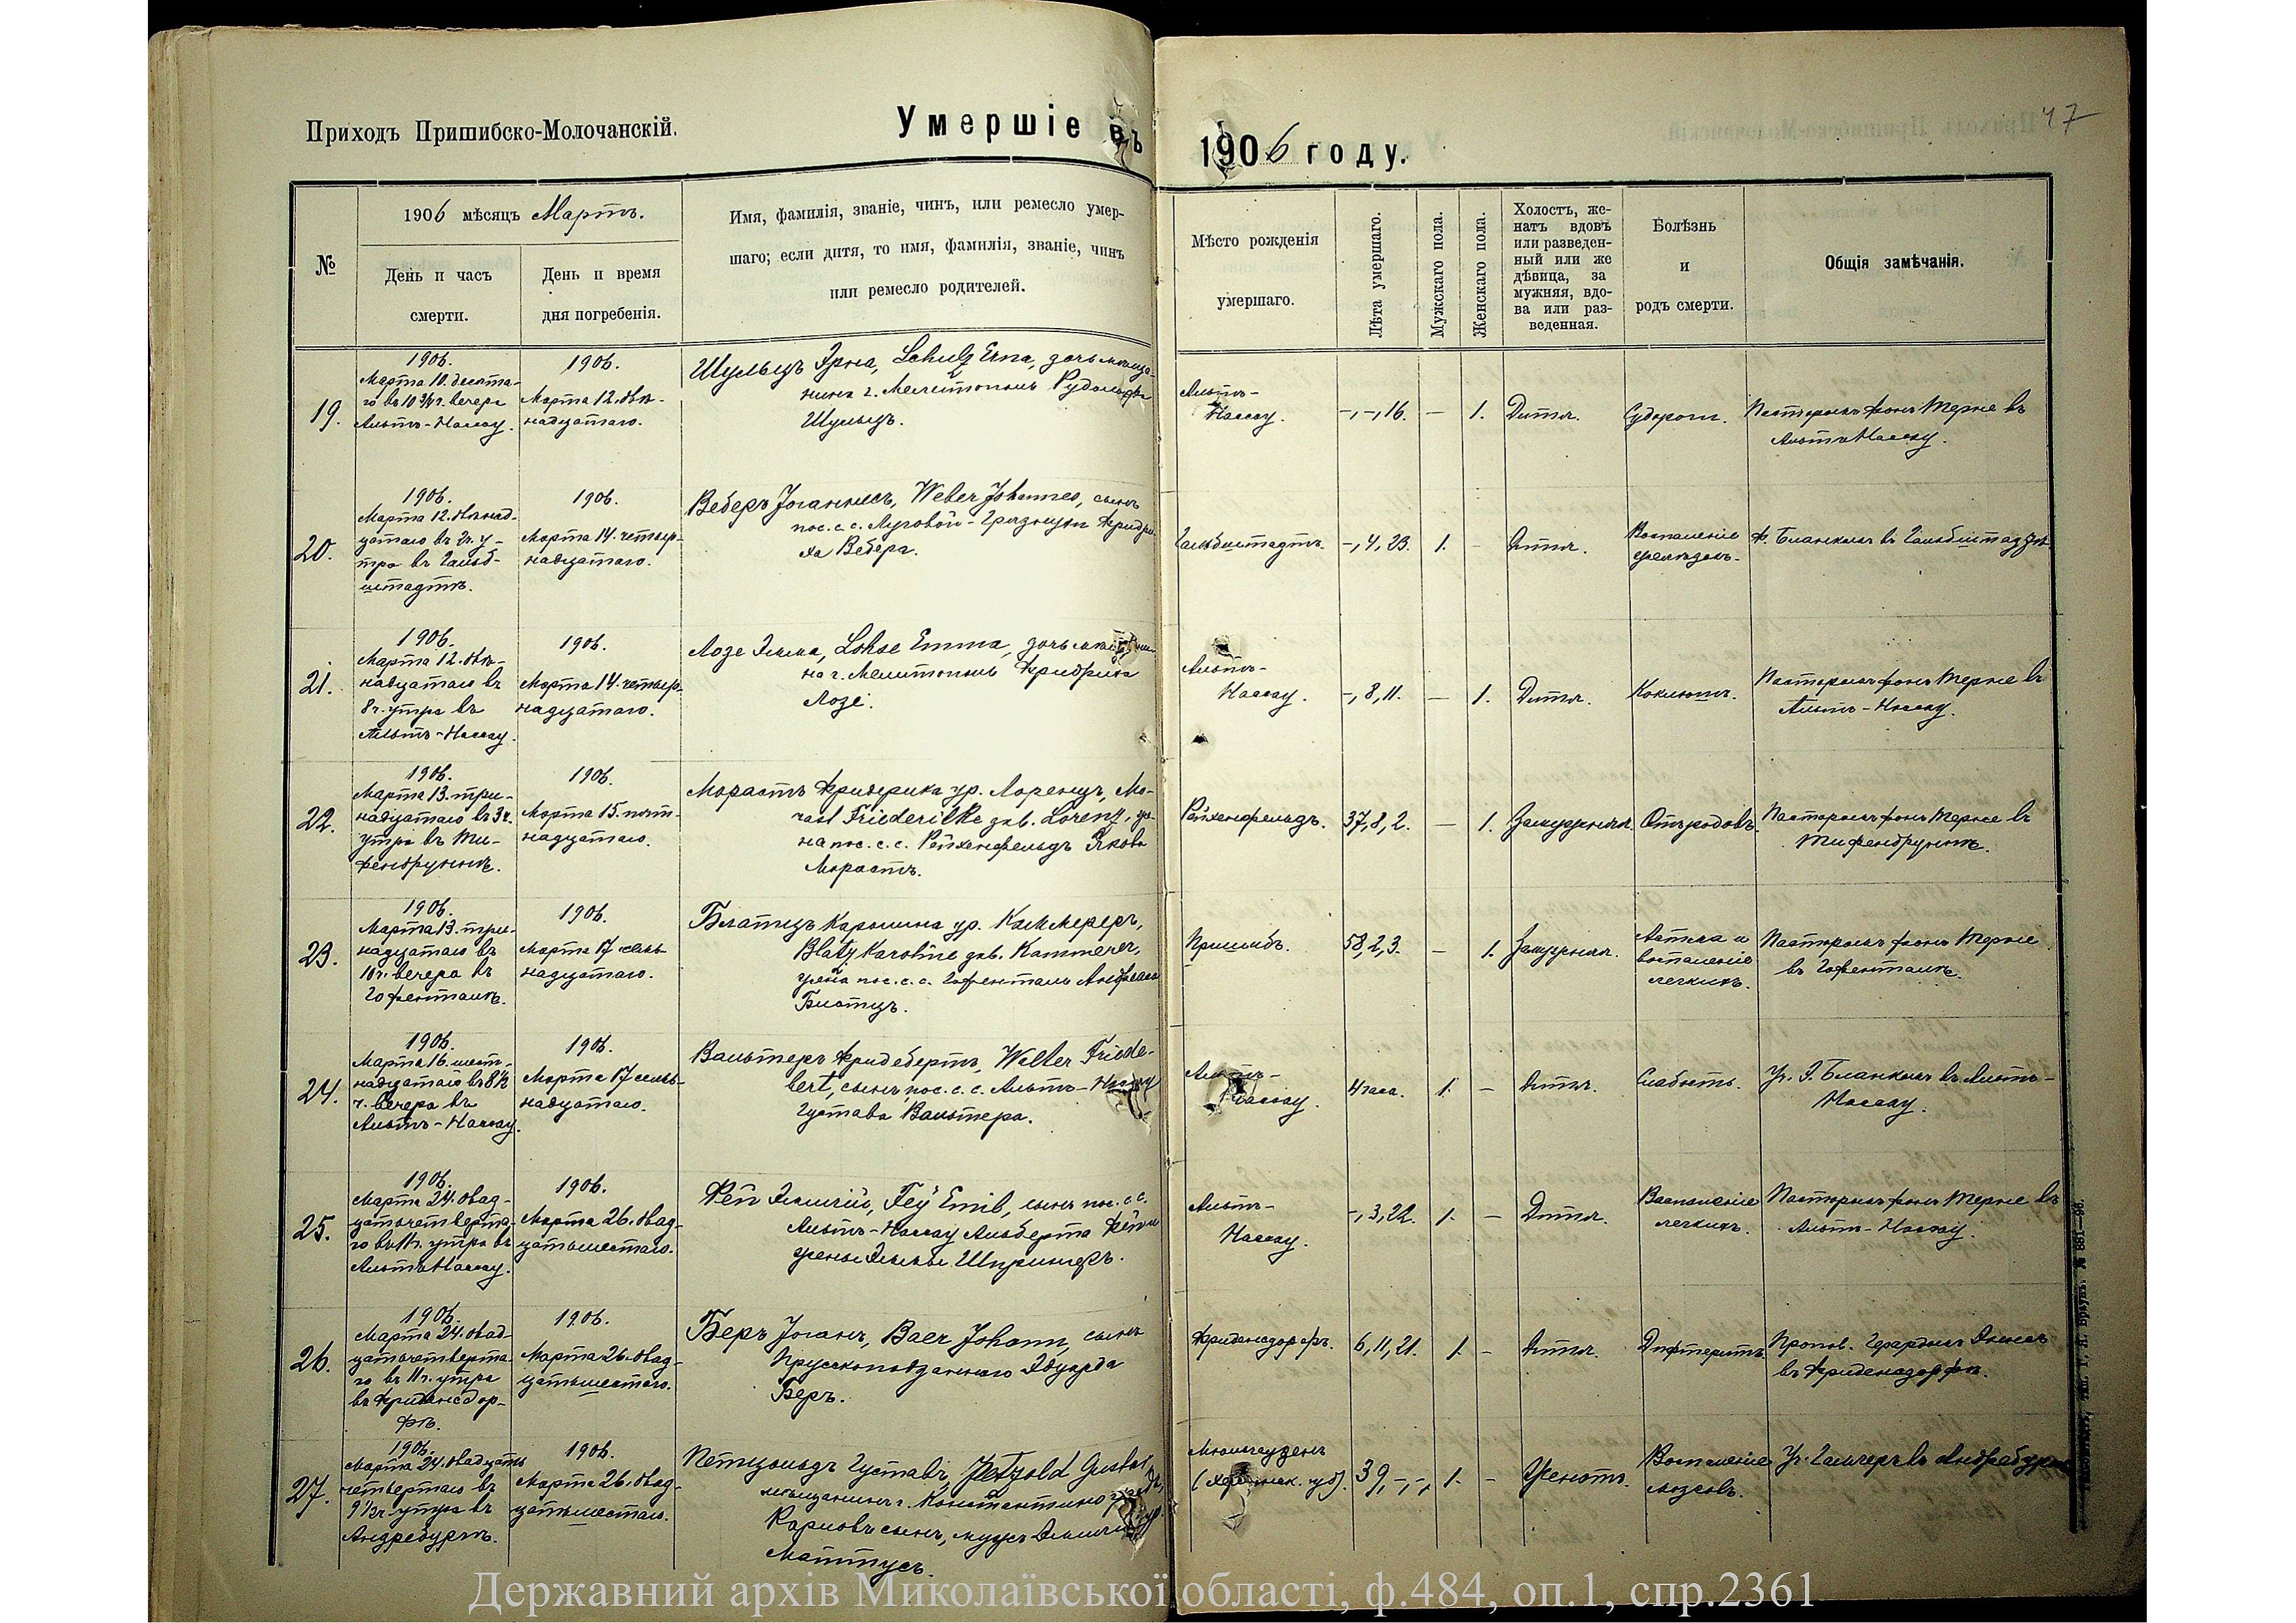 47
Приходъ Пришибско-Молочанскій.
Умершіе въ
1906 году.
№
1906 мѣсяцъ Мартъ.
День и часъ
смерти.
День и время
дня погребенія.
Имя, фамилія, званіе, чинъ, или ремесло умер-
шаго; если дитя, то имя, фамилія, званіе, чинъ
или ремесло родителей.
Мѣсто рожденія
умершаго.
Лѣта умершаго.
Мужскаго пола.
Женскаго пола.
Холостъ, же-
натъ вдовъ
или разведен-
ный или же
дѣвица, за
мужняя, вдо-
ва или раз-
веденная.
Болѣзнь
и
родъ смерти.
Общія замѣчанія.
19.
1906.
Марта 10. десята-
го въ 10 3/4 ч. вечера
Альтъ-Нассау.
1906.
Марта 12. двѣ-
надцатаго.
Шульцъ Эрна, Schulz Erna, дочь мѣща-
нина г. Мелитополь Рудольфа
Шульцъ.
Альтъ-
Нассау.
-, -, 16.
—
1.
Дитя.
Судороги.
Пасторомъ фонъ Терне въ
Альтъ Нассау.
20.
1906.
Марта 12. двѣнад-
цатаго въ 2 ч. у-
тра въ Гальб-
штадтѣ.
1906.
Марта 14. четыр-
надцатаго.
Веберъ Іоганнесъ, Weber Johannes, сынъ
пос. с. с. Луговой-
ха Вебера.
Гальбштадтъ.
-, 4, 23.
1.
-
Дитя.
Воспаленіе
Ф. Бланкомъ въ Гальбштадтѣ.
21.
1906.
Марта 12. двѣ-
надцатаго въ
8 ч. утра въ
Альтъ-Нассау.
1906.
Марта 14. четыр-
надцатаго.
Лозе Эмма, Lohse Emma, дочь
на г. Мелитополь Фридриха
Лозе.
Альтъ-
Нассау.
-, 8, 11.
—
1.
Дитя.
Коклюшъ.
Пасторомъ фонъ Терне въ
Альтъ-Нассау.
22.
1906.
Марта 13. три-
надцатаго въ 3 ч.
утра въ Ти-
фенбрунѣ.
1906.
Марта 15. пят-
надцатаго.
Морастъ Фридерика ур. Лоренцъ, Mo-
rast Friederike geb. Lorenz, же-
на пос. с. с. Рейхенфельдъ Якова
Морастъ.
Рейхенфельдъ.
37, 8, 2.
—
1.
Замужняя.
Отъ родовъ.
Пасторомъ фонъ Терне въ
Тифенбрунѣ.
23.
1906.
Марта 13. три-
надцатаго въ
10 ч. вечера въ
Гофенталѣ.
1906.
Марта 17 семь-
надцатаго.
Блатцъ Каролина ур. Каммереръ,
Blatz Karoline geb. Kammerer,
жена пос. с. с. Гофенталь Андреаса
Блатцъ.
Пришибъ.
58, 2, 3.
—
1.
Замужняя.
Астма и
воспаленіе
легкихъ.
Пасторомъ фонъ Терне
въ Гофенталѣ.
24.
1906.
Марта 16. шест-
надцатаго въ 8 1/2
ч. вечера въ
Альтъ-Нассау.
1906.
Марта 17 семь-
надцатаго.
Вальтеръ Фридебертъ, Walter Friede-
bert, сынъ пос. с. с. Альтъ-Нассау
Густава Вальтера.
Альтъ-
Нассау.
4 часа.
1.
-
Дитя.
Слабость.
Уч. Г. Бланкомъ въ Альтъ-
Нассау.
25.
1906.
Марта 24. двад-
цатьчетверта-
го въ 11 ч. утра въ
Альтъ Нассау.
1906.
Марта 26. двад-
цатьшестаго.
Фей Эмилій, Feÿ Emil, сынъ пос. с. с.
Альтъ-Нассау Альберта Фей и
жены Эммы Шпрингеръ.
Альтъ-
Нассау.
-, 3, 22.
1.
-
Дитя.
Воспаленіе
легкихъ.
Пасторомъ фонъ Терне въ
Альтъ-Нассау.
26.
1906.
Марта 24. двад-
цатьчетверта-
го въ 11 ч. утра
въ Фриденсдор-
фѣ.
1906.
Марта 26. двад-
цатьшестаго.
Беръ Іоганъ, Baer Johann, сынъ
Прусскоподданнаго Эдуарда
Беръ.
Фриденсдорфъ.
6, 11, 21.
1.
-
Дитя.
Дифтеритъ.
Пропов. Герардомъ
въ Фриденсдорфѣ.
27.
1906.
Марта 24. двадцать
четвертаго въ
9 1/2 ч. утра въ
Андребургѣ.
1906.
Марта 26. двад-
цатьшестаго.
Петцольдъ Густавъ, Petzold Gustav,
мѣщанинъ г. Константиноградъ,
Карловъ сынъ, мужъ Эмиліи ур.
Маттусъ.
Мюльгаузенъ
39, -, -,
1.
-
Женатъ.
Воспаленіе
мозговъ.
Уч. Галлеръ въ Андребургѣ
№ 881—98.
Державний архів Миколаївської області, ф.484, оп.1, спр.2361